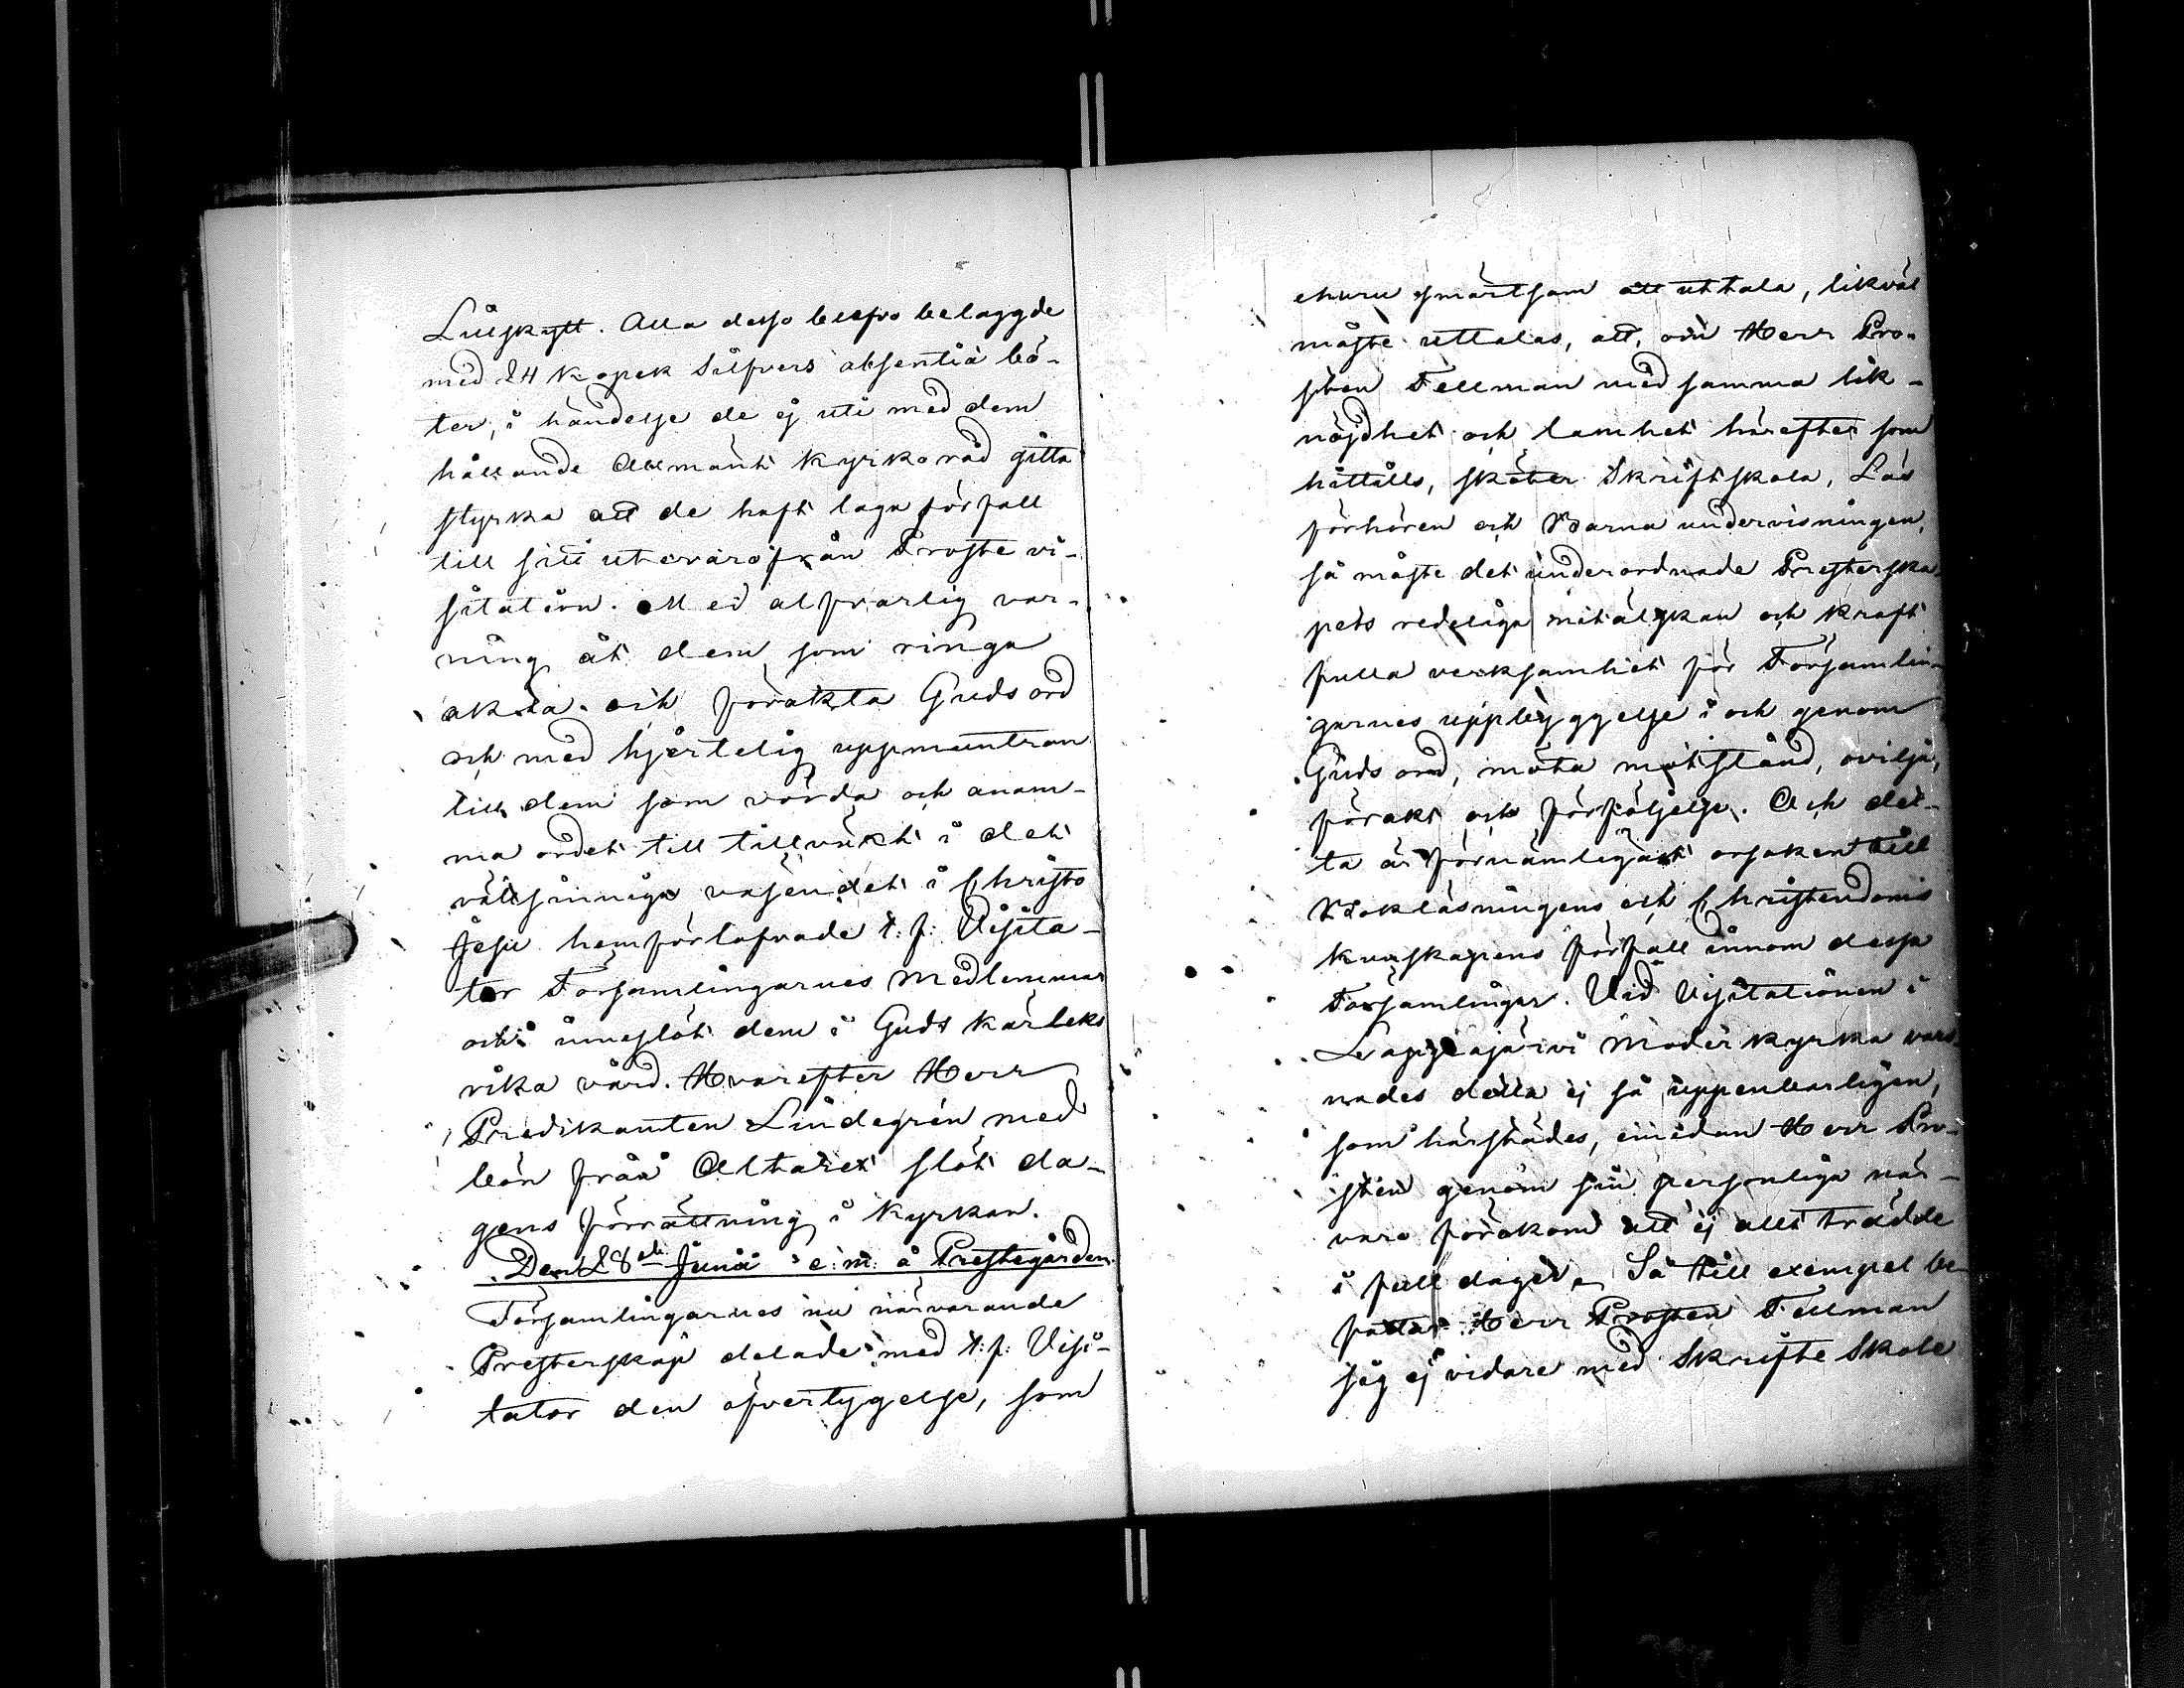 Lillskytt. Alla desse blefvo belaggde
med 24 Kopek Silfvers absentiæ bö-
ter, i händelse de ej uti med dem
hållande Allmänt Kyrkoråd gitta
styrka att de haft laga förfall
till sitt utevaro från Proste vi-
sitation. Med alfvarlig var-
ning åt dem som ringa
akta och förakta Guds ord
och med hjertelig uppmuntran
till dem som vörda och anam-
ma ordet till tillväxt i det
rättsinniga väsendet i Christo
Jesu hemförlofvade t: f: Visita-
tor Församlingarnes medlemmar
och inneslöt dem i Guds kärleks
rika vård. Hvarefter Herr
Predikanten Lindegrén med
bön från Altaret slöt da-
gens förrättning i Kyrkan.
Den 28de Junii e: m: å Prestegården
Församlingarnes nu närvarande
Presterskap delade med t: f: Visi-
tator den öfvertygelse, som
ehuru smärtsam att uttala, likväl
måste uttalas, att, om Herr Pro-
sten Fellman med samma lik-
nöjdhet och lamhet härefter som
hittills, sköter Skriftskola, Läs
förhören och Barna undervisningen,
så måste det underordnade Presterska-
pets redeliga nitälskan och kraft
fulla verksamhet för Församlin-
garnes uppbyggelse i och genom
Guds ord, möta motstånd, ovilja,
förakt och förföljelse. Och det-
ta är förnämligast orsaken till
Bokläsningens och Christendoms
kunskapens förfall innom dessa
Församlingar. Vid Visitationen i
Lappajärvi Moderkyrka vars-
nades detta ej så uppenbarligen,
som härstädes, emedan Herr Pro-
sten genom sin personliga när-
varo förekom att ej allt trädde
i full dager. Så till exempel be-
fattar Herr Prosten Fellman
sig ej vidare med Skrifte Skole